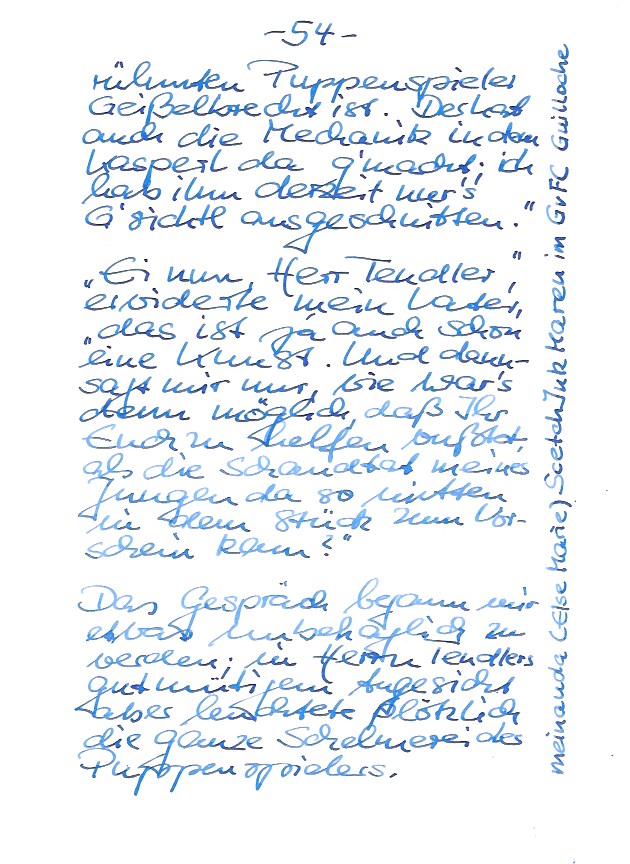 -54-
rühmten Puppenspieler
Geißelbrecht ist. Der hat
auch die Mechanik in dem
Kasperl da g'macht; ich
hab ihm derzeit nur's
G'sichtl ausgeschnitten."
„Ei nun, Herr Tendler,"
erwiderte mein Vater,
„das ist ja auch schon
eine Kunst. Und dann-
sagt mir nur, wie war's
denn möglich, daß Ihr
Euch zu helfen wußtet,
als die Schandtat meines
Jungen da so mitten
in dem Stück zum Vor-
schein kam?"
Das Gespräch begann mir
etwas unbehaglich zu
werden; in Herrn Tendlers
gutmütigem Angesicht
aber leuchtete plötzlich
die ganze Schelmerei des
Puppenspielers.
meinauda (Else Marie) Scetch Ink Karen im GvFC Guilloche